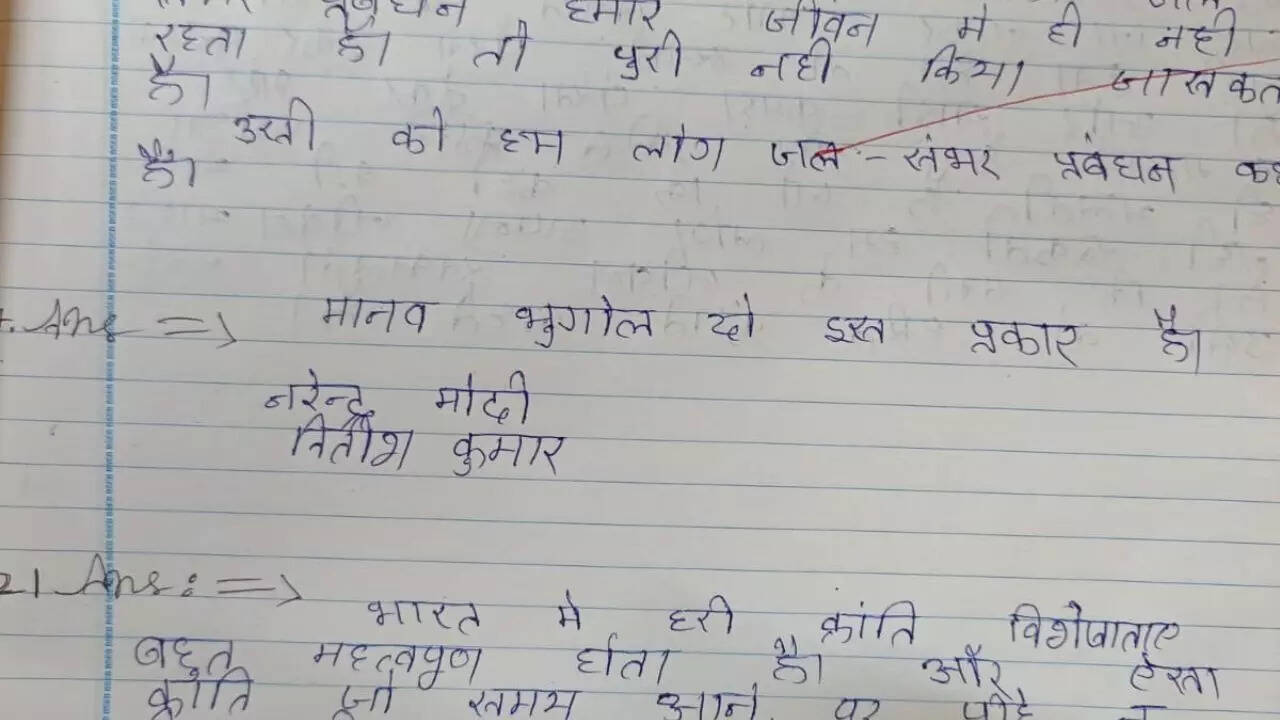 प्रबंधन हमारे जीवन मे ही नही
रहता है। तो पुरी नही किया जासकता
है।
उसी को हम लोग जल - संभर प्रबंधन कह
है।
Ans => मानव भुगोल दो इस प्रकार है।
नरेन्द्र मोदी
नितीश कुमार
21 Ans: => भारत मे हरी क्रांति विशेषाताए
बहुत महत्वपुण होता है। और ऐसा
क्रांति जो समय आने पर